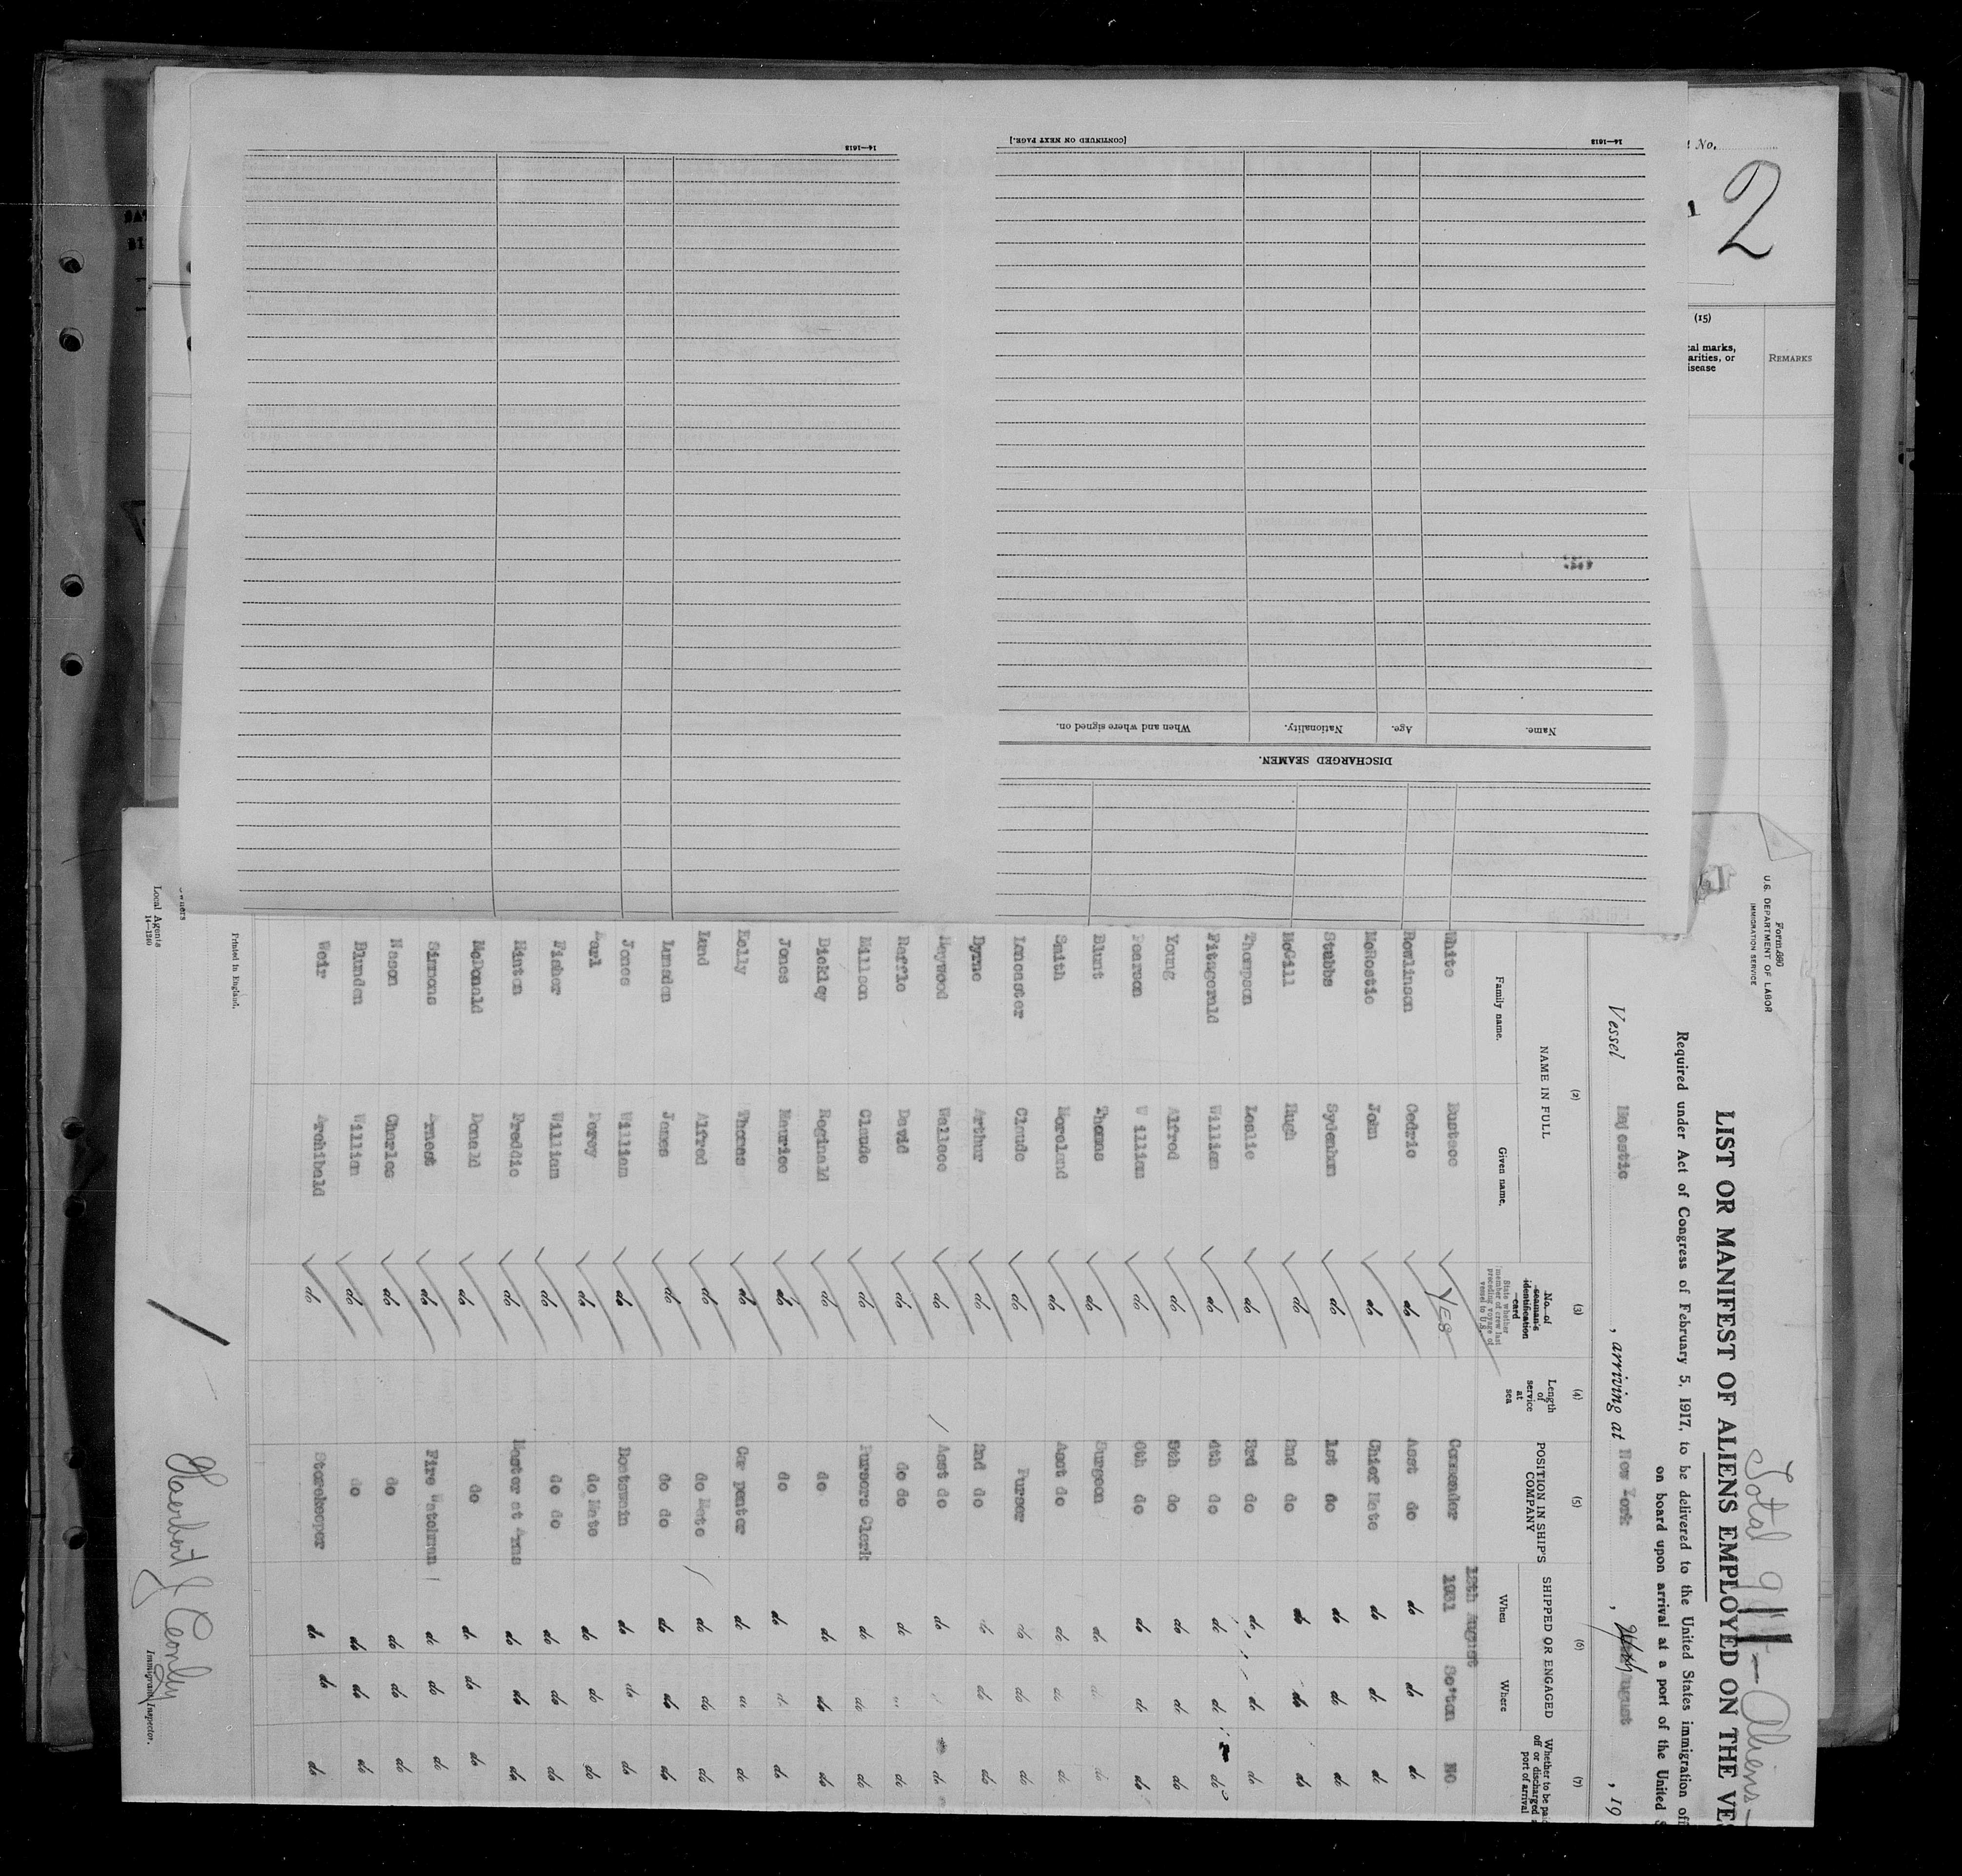 [CONTINUED ON NEXT PAGE.]
14—1613
14—1613
DISCHARGED SEAMEN.
Name. Age. Nationality. When and where signed on.
No.
2
(15)
REMARKS
Form 680
U. S. DEPARTMENT OF LABOR
IMMIGRATION SERVICE
Total 911 - Aliens -
LIST OR MANIFEST OF ALIENS EMPLOYED ON THE VES
Required under Act of Congress of February 5, 1917, to be delivered to the United States immigration offi
on board upon arrival at a port of the United S
Vessel Majestic, arriving at New York, August, 19
(2) (3) (4) (5) (6) (7)
NAME IN FULL
Family name. Given name.
No. of seaman's identification card
State whether member of crew last preceding voyage of vessel to U.S.
Length of service at sea
POSITION IN SHIP'S COMPANY
SHIPPED OR ENGAGED
When Where
Whether to be pai off or discharged a port of arrival
18th August
White Eustace YES Commander 1931 So'ton NO
Rowlinson Cedric do Asst do do do do
McRostie John do Chief Mate do do do
Stubbs Sydenham do 1st do do do do
McGill Hugh do 2nd do do do do
Thompson Leslie do 3rd do do do do
Fitzgerald William do 4th do do do do
Young Alfred do 5th do do do do
Pearson William do 6th do do do do
Blunt Thomas do Surgeon do do do
Smith Moreland do Asst do do do do
Lancaster Claude do Purser do do do
Byrne Arthur do 2nd do do do do
Heywood Wallace do Asst do do do
Raffle David do do do do do do
Millson Claude do Pursers Clerk do do do
Dickley Reginald do do do do do
Jones Maurice do do do do do
Kelly Thomas do Carpenter do do do
Lund Alfred do do Mate do do do
Lumsden James do do do do do do
Jones William do Boatswain do do do
Earl Percy do do Mate do do do
Fisher William do do do do do do
Hinton Freddie do Master at Arms do do do
McDonald Donald do do do do do
Simmons Ernest do Fire Watchman do do do
Nason Charles do do do do do
Blunden William do do do do do
Weir Archibald do Storekeeper do do do
Printed in England.
Local Agents
14—1240
Immigrant Inspector.